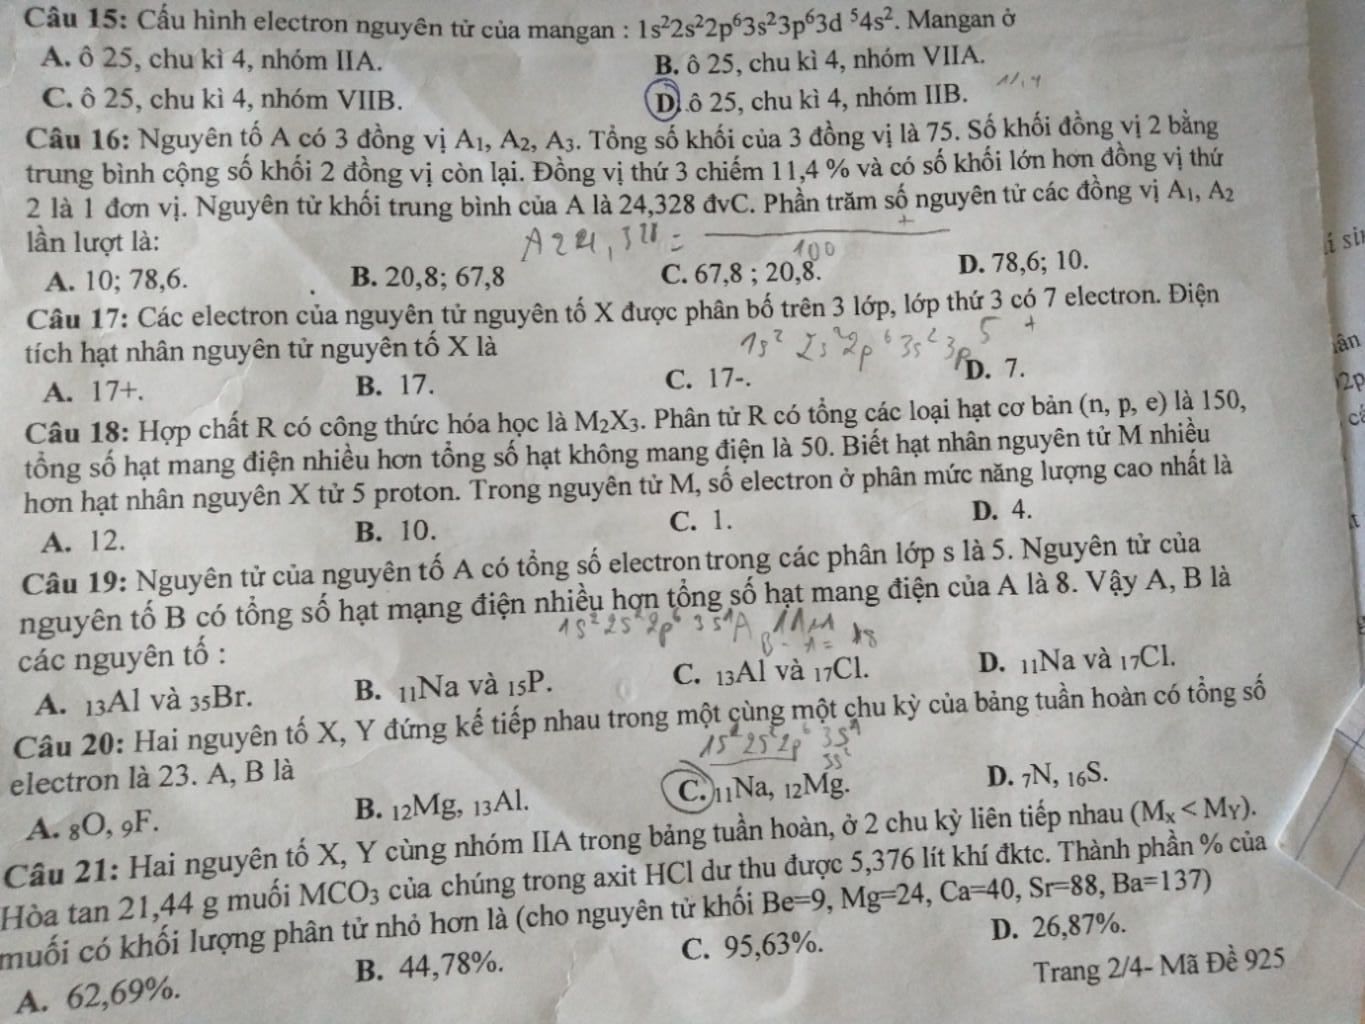 Câu 15: Cấu hình electron nguyên tử của mangan : 1s²2s²2p⁶3s²3p⁶3d ⁵4s². Mangan ở
A. ô 25, chu kì 4, nhóm IIA. B. ô 25, chu kì 4, nhóm VIIA.
C. ô 25, chu kì 4, nhóm VIIB. D. ô 25, chu kì 4, nhóm IIB. 11,4
Câu 16: Nguyên tố A có 3 đồng vị A₁, A₂, A₃. Tổng số khối của 3 đồng vị là 75. Số khối đồng vị 2 bằng
trung bình cộng số khối 2 đồng vị còn lại. Đồng vị thứ 3 chiếm 11,4 % và có số khối lớn hơn đồng vị thứ
2 là 1 đơn vị. Nguyên tử khối trung bình của A là 24,328 đvC. Phần trăm số nguyên tử các đồng vị A₁, A₂
lần lượt là:
100
A. 10; 78,6. B. 20,8; 67,8 C. 67,8 ; 20,8. D. 78,6; 10.
Câu 17: Các electron của nguyên tử nguyên tố X được phân bố trên 3 lớp, lớp thứ 3 có 7 electron. Điện
tích hạt nhân nguyên tử nguyên tố X là
1s² 2s² 2p⁶ 3s² 3p⁵ +
A. 17+. B. 17. C. 17-. D. 7.
Câu 18: Hợp chất R có công thức hóa học là M₂X₃. Phân tử R có tổng các loại hạt cơ bản (n, p, e) là 150,
tổng số hạt mang điện nhiều hơn tổng số hạt không mang điện là 50. Biết hạt nhân nguyên tử M nhiều
hơn hạt nhân nguyên X tử 5 proton. Trong nguyên tử M, số electron ở phân mức năng lượng cao nhất là
A. 12. B. 10. C. 1. D. 4.
Câu 19: Nguyên tử của nguyên tố A có tổng số electron trong các phân lớp s là 5. Nguyên tử của
nguyên tố B có tổng số hạt mạng điện nhiều hơn tổng số hạt mang điện của A là 8. Vậy A, B là
1s² 2s² 2p⁶ 3s¹
các nguyên tố :
A. ₁₃Al và ₃₅Br. B. ₁₁Na và ₁₅P. C. ₁₃Al và ₁₇Cl. D. ₁₁Na và ₁₇Cl.
Câu 20: Hai nguyên tố X, Y đứng kế tiếp nhau trong một cùng một chu kỳ của bảng tuần hoàn có tổng số
1s² 2s² 2p⁶ 3s¹
3s²
electron là 23. A, B là
A. ₈O, ₉F. B. ₁₂Mg, ₁₃Al. C. ₁₁Na, ₁₂Mg. D. ₇N, ₁₆S.
Câu 21: Hai nguyên tố X, Y cùng nhóm IIA trong bảng tuần hoàn, ở 2 chu kỳ liên tiếp nhau (Mₓ < Mʏ).
Hòa tan 21,44 g muối MCO₃ của chúng trong axit HCl dư thu được 5,376 lít khí đktc. Thành phần % của
muối có khối lượng phân tử nhỏ hơn là (cho nguyên tử khối Be=9, Mg=24, Ca=40, Sr=88, Ba=137)
A. 62,69%. B. 44,78%. C. 95,63%. D. 26,87%.
Trang 2/4- Mã Đề 925